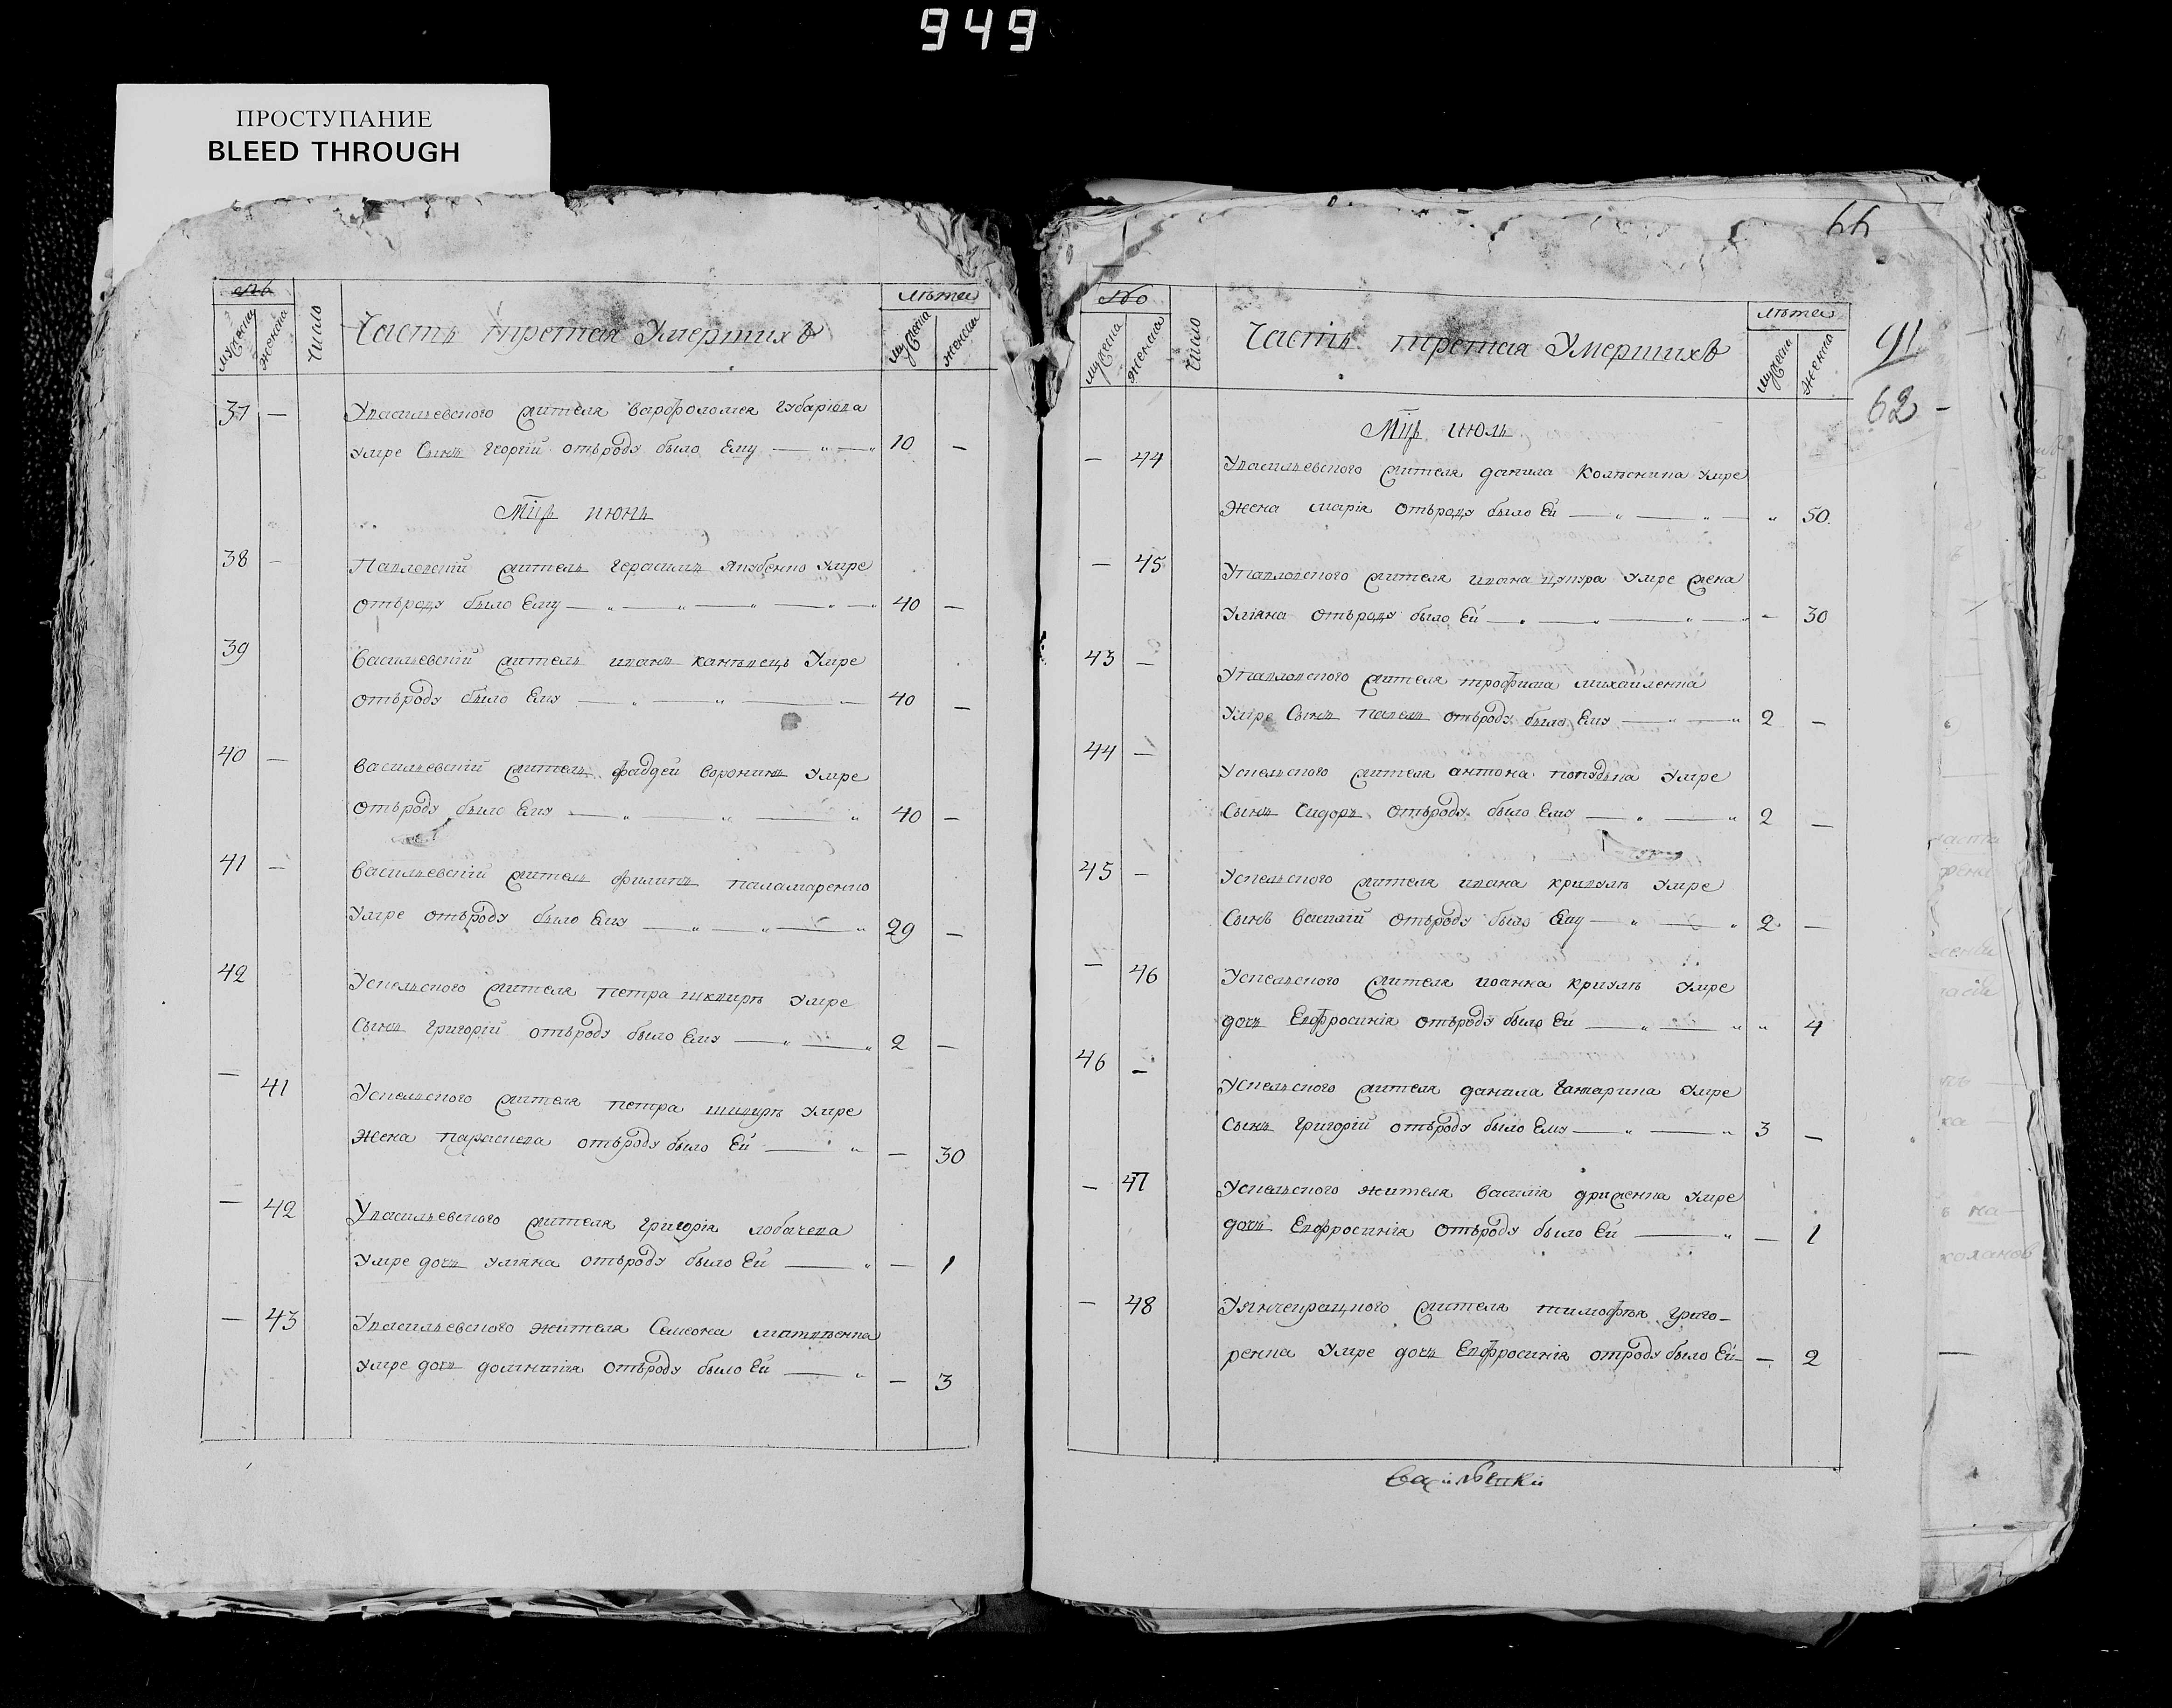 949
ПРОСТУПАНИЕ
BLEED THROUGH
№ Число Часть третая Умершихъ лѣта
мужеска женска мужеска женска
37 — Увасильевского жителя варфоломея губарјова
умре Сынъ георгій отъроду было Ему — „ — 10 —
Мцъ июнь
38 — Павловскій житель герасимъ якубенко умре
отъроду было Ему — „ — „ — „ — „ — 40 —
39 Васильевскій житель иванъ Умре
отъроду было Ему — „ — „ — 40 —
40 — Васильевскій житель фаддей воронинъ умре
отъроду было Ему — „ — „ — „ 40 —
41 — Васильевскій житель филипъ паламаренко
Умре отъроду было Ему — „ — „ — „ 29 —
42 Успевского жителя петра умре
Сынъ григорій отъроду было Ему — „ — „ 2 —
— 41 Успевского жителя петра умре
Жена параскева отъроду было Ей — „ — 30
— 42 Увасильевского жителя григорія лобачева
Умре дочь уліяна отъроду было Ей — „ — 1
— 43 Увасильевского жителя Семена матвѣенка
умре дочь домникія отъроду было Ей — „ — 3
66
№ Число Часть третая Умершихъ лѣта
мужеска женска мужеска женска
91
62 —
Мцъ июль
— 44 Увасильевского жителя данила Колѣсника Умре
Жена марія отъроду было Ей — „ — „ — „ 50
— 45 Упавловского жителя ивана цупура умре жена
Уліяна отъроду было Ей — „ — „ — „ — 30
43 — Упавловского жителя трофима михайленка
Умре Сынъ павелъ отъроду было Ему — „ — „ 2 —
44 — Успевского жителя антона умре
Сынъ Сидоръ отъроду было Ему — „ — „ 2 —
45 — Успевского жителя ивана кривулѣ Умре
Сынъ василій отъроду было Ему — „ — „ 2 —
— 46 Успевского жителя иоанна кривулѣ умре
дочь Евфросинія отъроду было Ей — „ — „ „ 4
46 — Успевского жителя данила Гамарина Умре
Сынъ григорій отъроду было Ему — „ — „ 3 —
— 47 Успевского жителя василія дриженка умре
дочь Евфросинія отъроду было Ей — „ — 1
— 48 жителя тимофѣя григо-
ренка Умре дочь Евфросинія отроду было Ей — 2